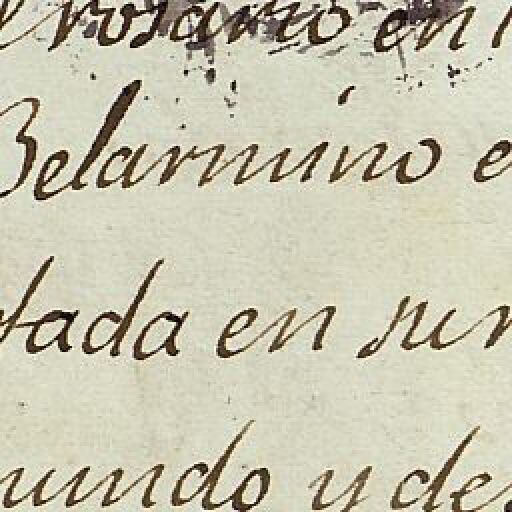 rosario en
Belarmino e
tada en su
mundo y de